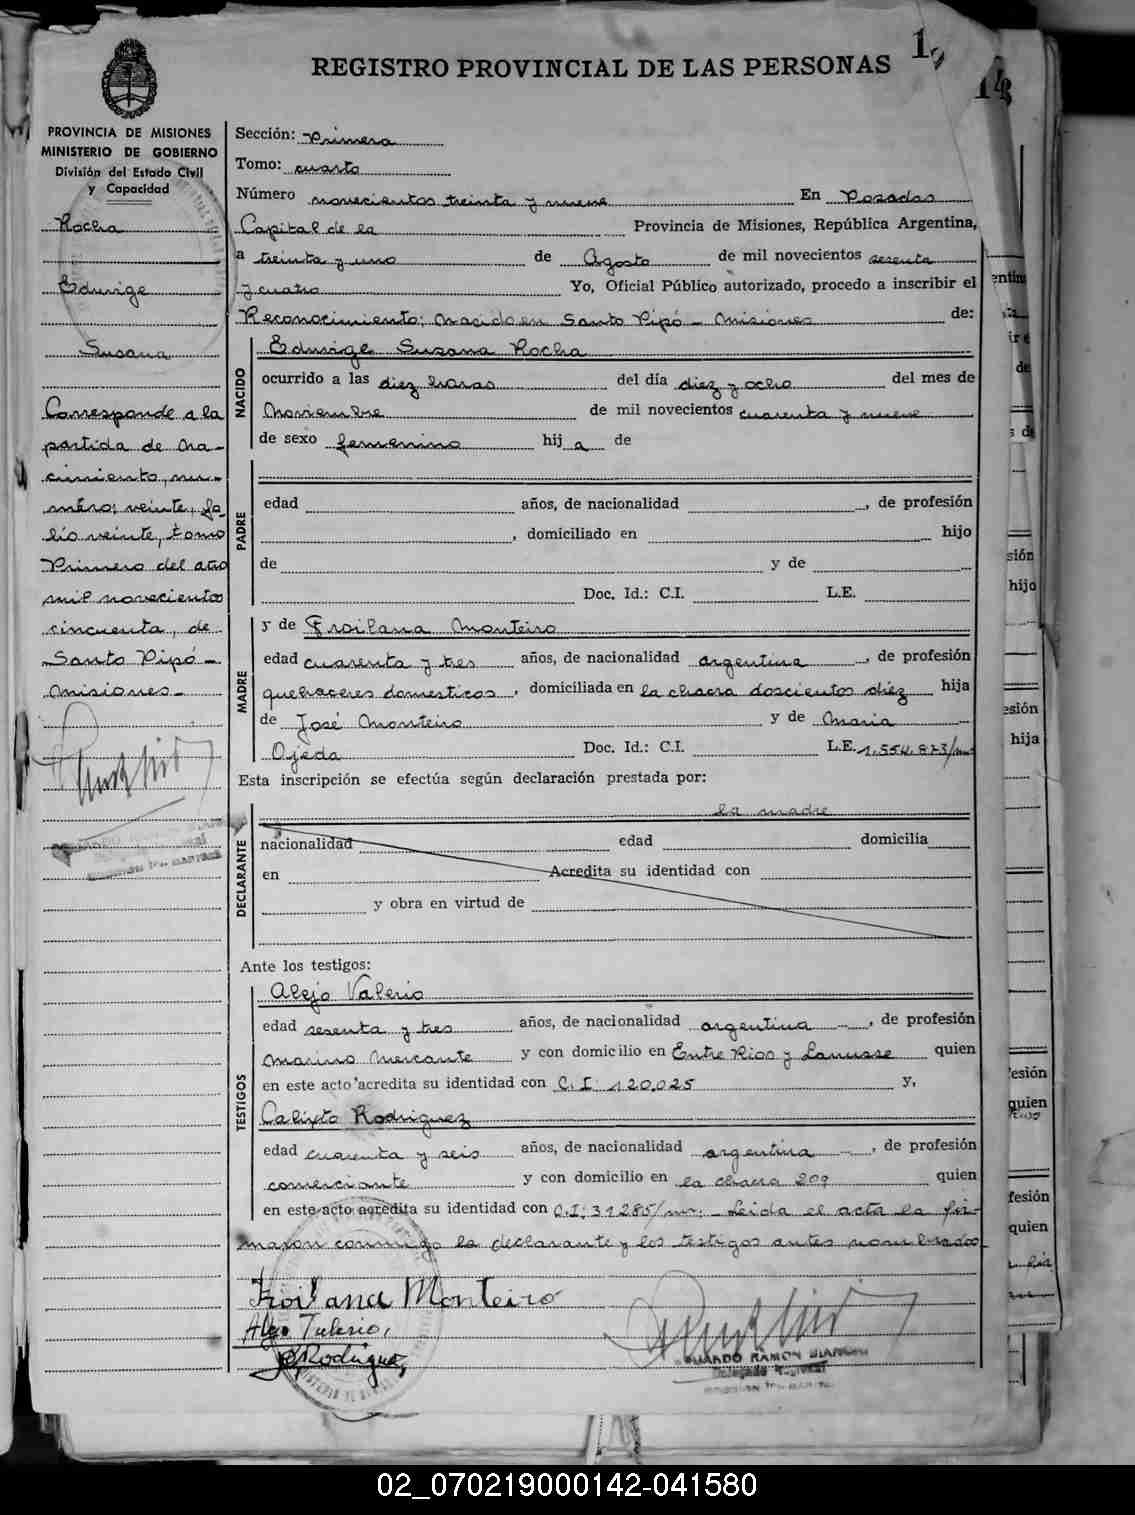 REGISTRO PROVINCIAL DE LAS PERSONAS
PROVINCIA DE MISIONES
MINISTERIO DE GOBIERNO
División del Estado Civil
y Capacidad
Rocha
Eduvige
Susana
Corresponde a la
partida de na-
cimiento, nu-
mero; veinte, fo-
lio veinte, tomo
Primero del año
mil novecientos
cincuenta, de
Santo Pipó -
Misiones -
Sección: Primera
Tomo: cuarto
Número novecientos treinta y nueve En Posadas
Capital de la Provincia de Misiones, República Argentina,
a treinta y uno de Agosto de mil novecientos sesenta
y cuatro Yo, Oficial Público autorizado, procedo a inscribir el
Reconocimiento; nacido en Santo Pipó - Misiones de:
NACIDO
Eduvige Susana Rocha
ocurrido a las diez horas del día diez y ocho del mes de
Noviembre de mil novecientos cuarenta y nueve
de sexo femenino hij a de
PADRE
edad años, de nacionalidad , de profesión
, domiciliado en hijo
de y de
Doc. Id.: C.I. L.E.
MADRE
y de Froilana Monteiro
edad cuarenta y tres años, de nacionalidad argentina , de profesión
quehaceres domesticos , domiciliada en la chacra doscientos diez hija
de José Monteiro y de Maria
Ojeda Doc. Id.: C.I. L.E. 1.554.873/
Esta inscripción se efectúa según declaración prestada por:
la madre
DECLARANTE
nacionalidad edad domicilia
en Acredita su identidad con
y obra en virtud de
Ante los testigos:
TESTIGOS
Alejo Valerio
edad sesenta y tres años, de nacionalidad argentina , de profesión
Marino Mercante y con domicilio en Entre Rios y Lanusse quien
en este acto acredita su identidad con C.I: 120.025 y,
Calixto Rodriguez
edad cuarenta y seis años, de nacionalidad argentina , de profesión
comerciante y con domicilio en la chacra 209 quien
en este acto acredita su identidad con C.I: 31285/ - Leida el acta la fir-
maron conmigo la declarante y los testigos antes nombrados
Froilana Monteiro
C Rodriguez
EDUARDO RAMON BIANCHI
02_070219000142-041580